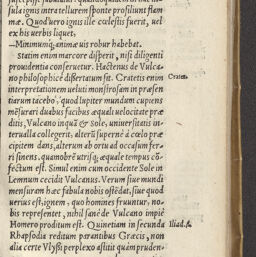 sula ignis intra tellurem sponte profiliunt flam
mæ. Quod uero ignis ille cœlestis fuerit, uel
ex his uerbis liquet,
—Minimumq; animæ uis robur habebat.
Statim enim marcore disperit, nisi diligenti
prouidentia conseruetur. Hactenus de Vulca-
no philosophice dissertatum sit. Cratetis enim
Crates.
interpretationem ueluti monstrosam in præsen
tiarum tacebo, quod Iupiter mundum cupiens
mensurari duabus facibus æquali uelocitate præ
ditis, Vulcano inquã & Sole, uniuersitatis in-
terualla collegerit: alterũ superne à cœlo præ
cipitem dans, alterum ab ortu ad occasum fer-
ri sinens. quamobrẽ utrisq; æquale tempus cõ-
fectum est. Simul enim cum occidente Sole in
Lemnum cecidit Vulcanus. Verum siue mundi
mensuram hæc fabula nobis ostẽdat, siue quod
uerius est, ignem, quo homines fruuntur, no-
bis repræsentet, nihil sanè de Vulcano impiè
Homero proditum est. Quinetiam in secunda
Iliad.
Rhapsodia reditum parantibus Græcis, non
alia certe Vlyssi perplexo astitit quàm pruden-